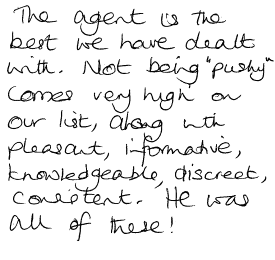 The agent is the
best we have dealt
with. Not being "pushy"
comes very high on
our list, along with
pleasant, informative,
knowledgeable, discreet,
consistent. He was
all of these!